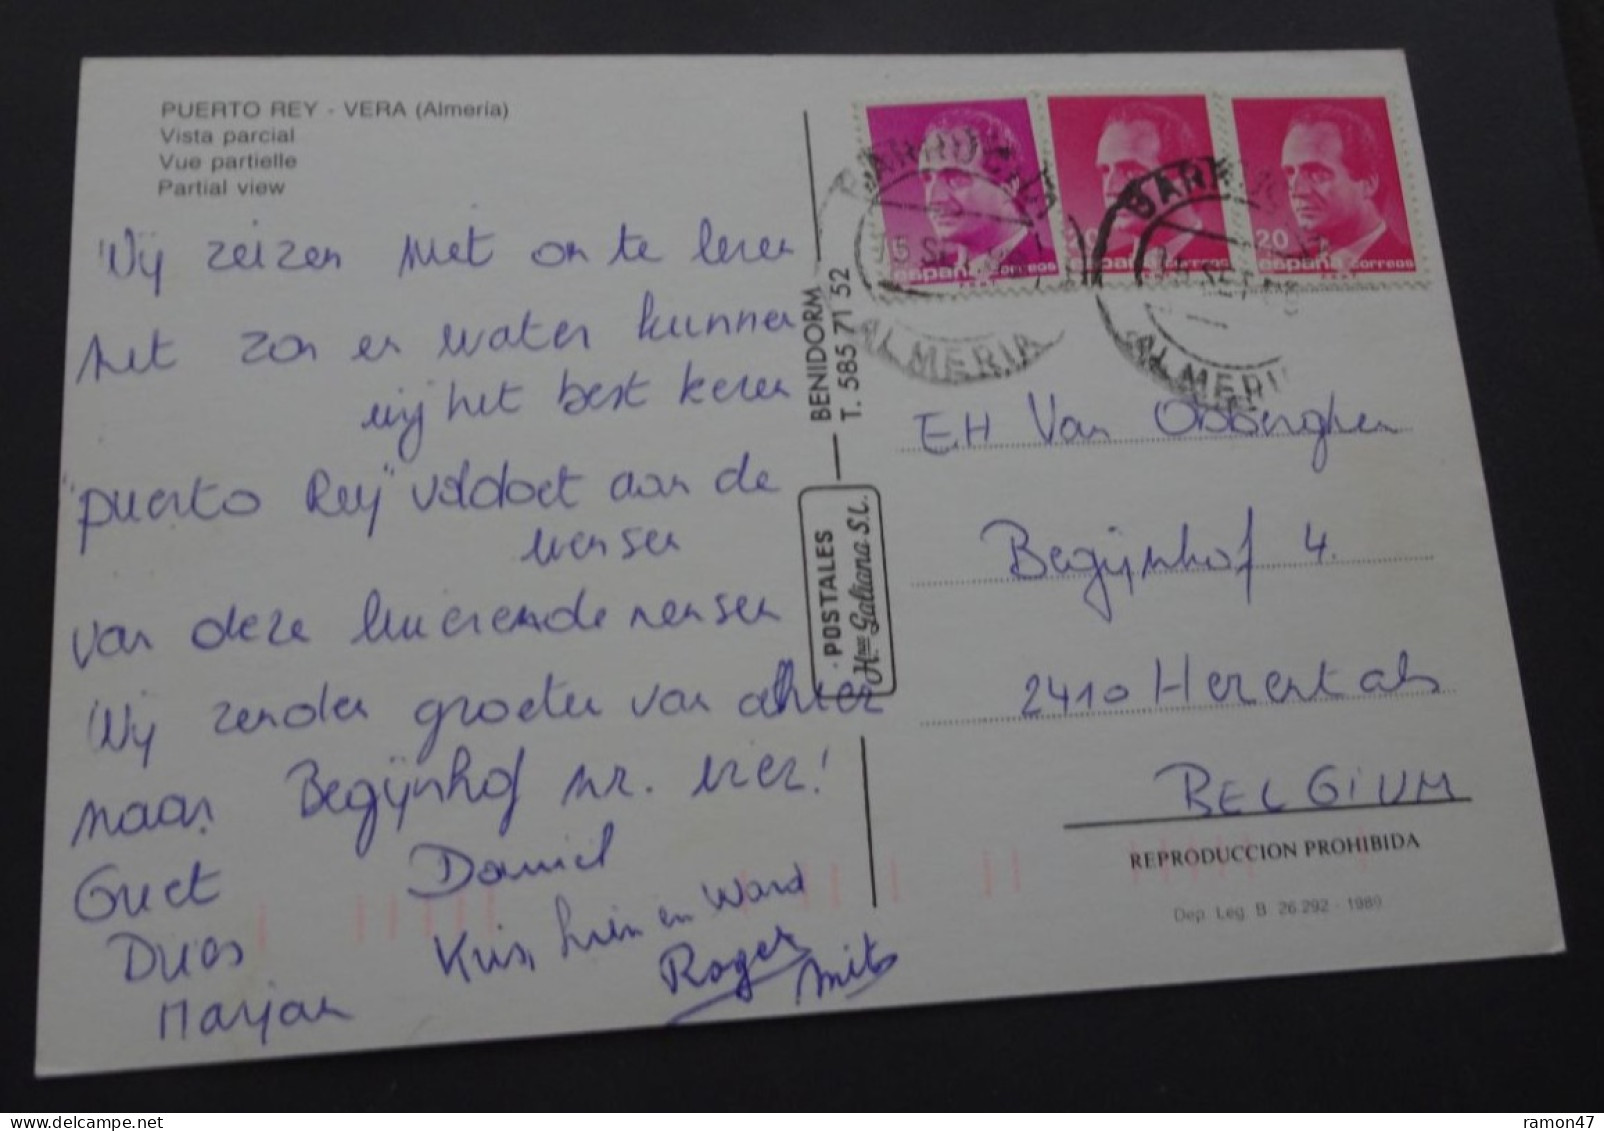 PUERTO REY - VERA (Almería)
Vista parcial
Vue partielle
Partial view
Wij reizen niet om te leren
met zon en water kunnen
wij het best keren
"puerto Rey" voldoet aan de
wensen
van deze luierende mensen
Wij zenden groeten van alhier
naar Begijnhof nr. vier!
Greet
Daniel
Dries
Kris, en Ward
Marjan
Roger
BENIDORM
T. 585 71 52
· POSTALES
Hnos Galiana S.L.
BARRONAL
ALMERIA
15
españa correos
20
españa correos
20
españa correos
BARR
ALMERI
E.H Van Obberghen
Begijnhof 4.
2410 Herentals
BELGIUM
REPRODUCCION PROHIBIDA
Dep. Leg. B 26.292 - 1989
ramon47